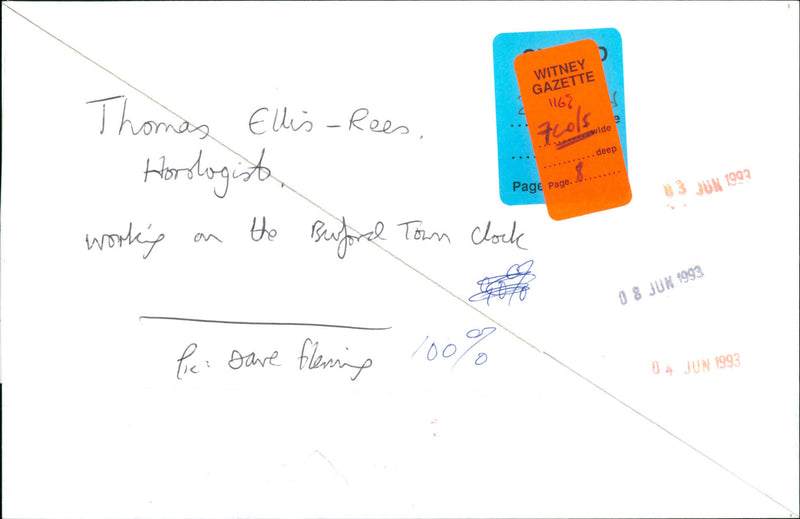 Thomas Ellis-Rees.
Horologist.
working on the Burford Town Clock
Pic: Dave Fleming
100%
WITNEY
GAZETTE
1169
7cols
wide
deep
Page 8
Page
03 JUN 1993
08 JUN 1993
04 JUN 1993